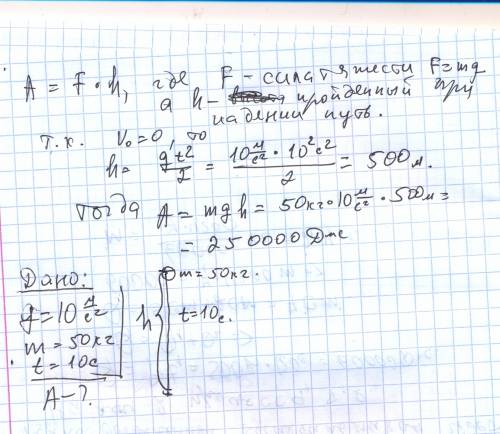 A = F·h, где F – сила тяжести F=mg
а h – пройденный при
падении путь.
т.к. V₀=0, то
h = gt²/2 = 10 м/с² · 10² с²/2 = 500 м.
тогда A = mgh = 50кг·10 м/с² · 500м =
= 250000 Дж
Дано:
g=10 м/с²
m=50кг
t=10с
A–?
h
m=50кг.
t=10с.